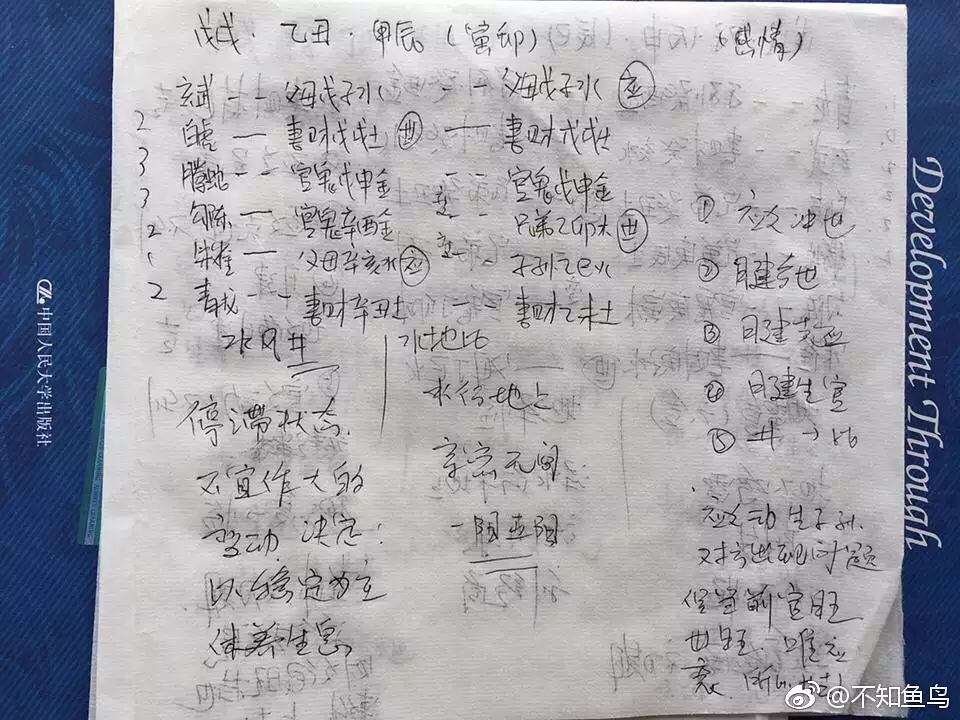 戊戌·乙丑·甲辰(寅卯) (感情)
玄武 - - 父母戊子水 - - 父母戊子水 应
2 白虎 — 妻财戊戌土 世 — 妻财戊戌土
3 腾蛇 - - 官鬼戊申金 - - 官鬼戊申金
3 勾陈 — 官鬼辛酉金 变 - - 兄弟乙卯木 世
2 朱雀 — 父母辛亥水 应 变 - - 子孙乙巳火
2 青龙 - - 妻财辛丑土 妻财乙未土
水风井
水地比
停滞状态
不宜作大的
变动 决定:
以稳定为主
休养生息
水行地上
亲密无间
一阳五阴
① 应爻冲世
② 日建合世
③ 日建克应
④ 日建生官
⑤ 井→比
应爻动生子孙
对方出现问题
但当前官旺
世旺. 唯应
衰.
中国人民大学出版社
Development Through
@不知鱼鸟